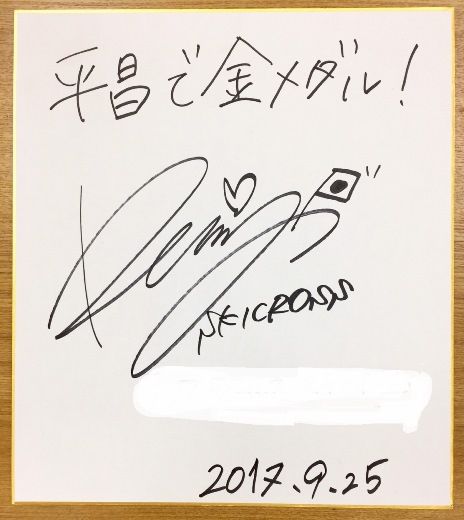 平昌で金メダル!
SKICROSS
2017.9.25